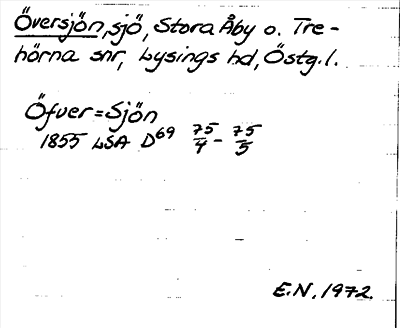 Översjön, sjö, Stora Åby o. Tre-
hörna snr, Lysings hd, Östg.l.
Öfver=Sjön
1855 LSA D69 75/4 - 75/5
E.N. 1972.